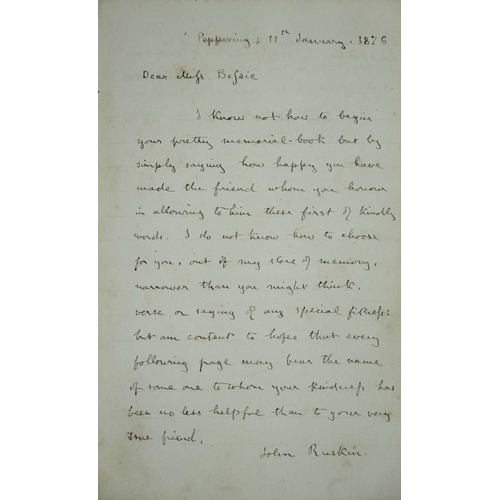 Peppering, 11th January. 1876
Dear Miss Bessie
I know not how to begin
your pretty memorial-book but by
simply saying how happy you have
made the friend whom you honour
in allowing to him these first of kindly
words. I do not know how to choose
for you, out of my store of memory,
narrower than you might think,
verse or saying of any special fitness:
but am content to hope that every
following page may bear the name
of some one to whom your kindness has
been no less helpful than to your very
true friend,
John Ruskin.